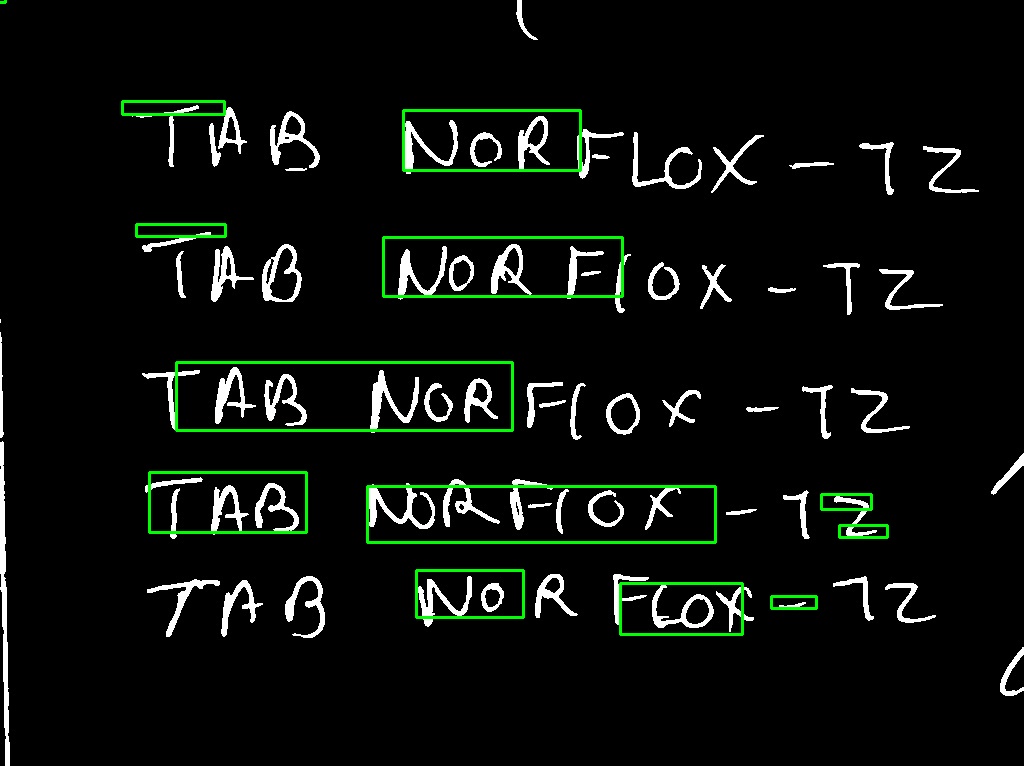 TAB NORFLOX - TZ
TAB NORFLOX - TZ
TAB NORFLOX - TZ
TAB NORFLOX - TZ
TAB NORFLOX - TZ